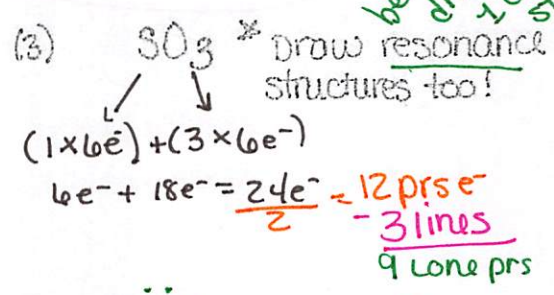 (3) SO3 * Draw resonance
structures too!
(1×6e⁻) + (3×6e⁻)
6e⁻ + 18e⁻ = 24e⁻ = 12 prs e⁻
2
- 3 lines
9 Lone prs